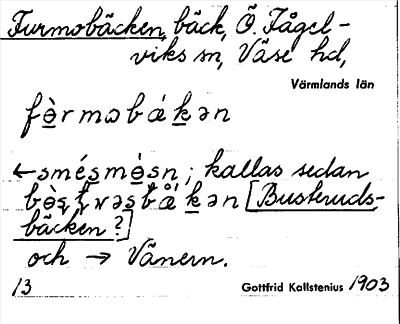 Furmobäcken, bäck, Ö. Fågel-
viks sn, Väse hd,
Värmlands län
fò̲rmɷbák̲ən
←əmés̲mò̲sn; kallas sedan
bò̲ʂʈrəs̲bá̊k̲ən [Busteruds-
bäcken?]
och → Vänern.
13 Gottfrid Kallstenius 1903